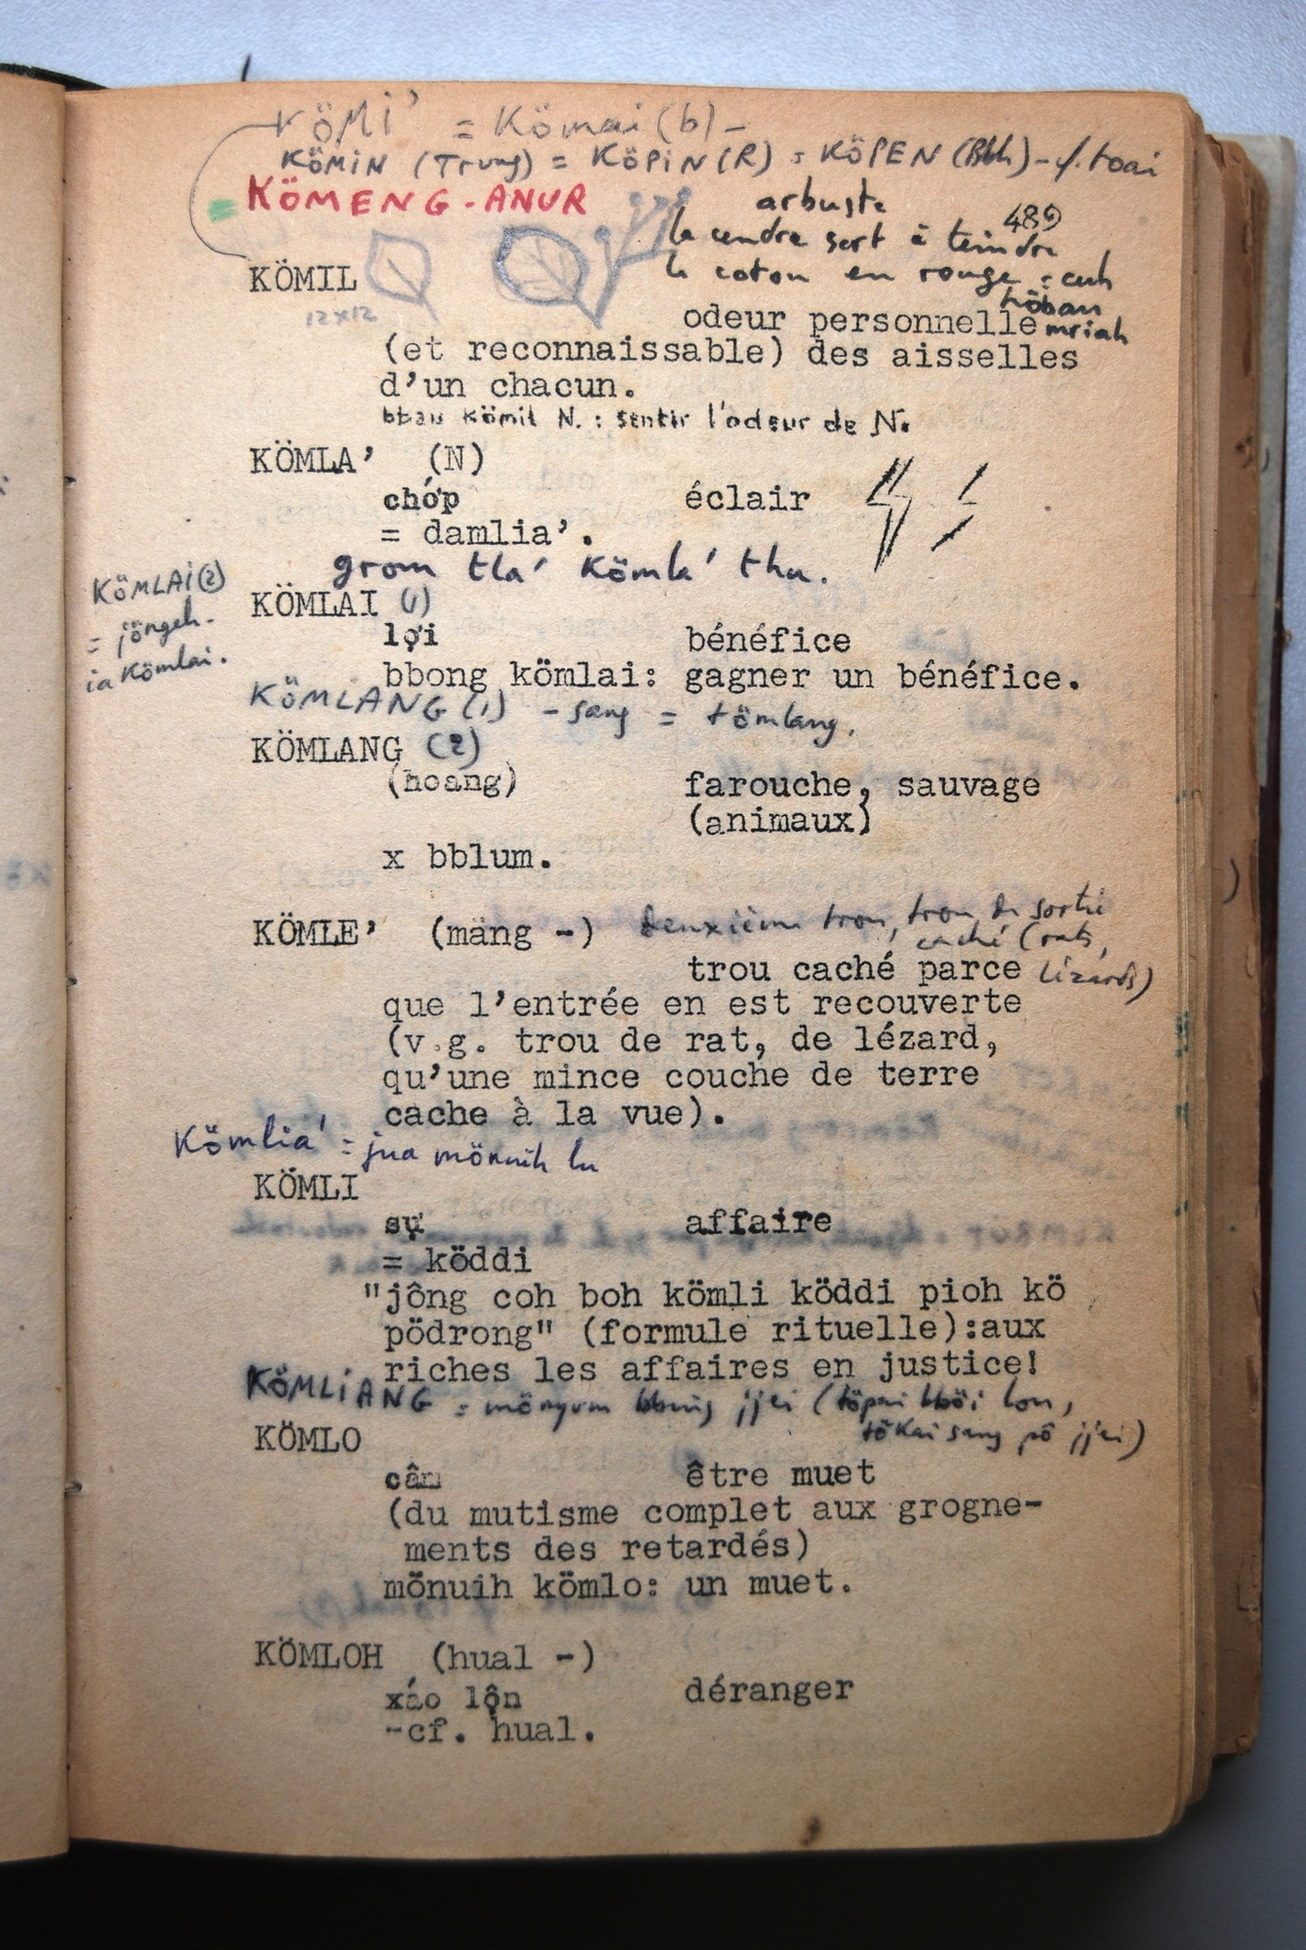 KÖMI' = Kömai (b) -
KÖMIN (Trung) = KÖPIN (R) = KÖPEN (Bbh) - toai
KÖMENG-ANUR arbuste
489
la cendre sert à teindre
le coton en rouge : cuh
höban
mriah
KÖMIL
12x12
odeur personnelle
(et reconnaissable) des aisselles
d'un chacun.
bbau kömil N. : sentir l'odeur de N.
KÖMLA' (N)
chớp éclair
= damlia'.
grom tla' kömla' thu.
KÖMLAI (2)
= jöngeh-
ia kömlai.
KÖMLAI (1)
lợi bénéfice
bbong kömlai: gagner un bénéfice.
KÖMLANG (1) - sang = tömlang.
KÖMLANG (2)
(hoang) farouche, sauvage
(animaux)
x bblum.
KÖMLE' (mäng -) deuxième trou, trou de sortie
caché (rats,
lézards)
trou caché parce
que l'entrée en est recouverte
(v.g. trou de rat, de lézard,
qu'une mince couche de terre
cache à la vue).
Kömlia' = jua mönuih lu
KÖMLI
sự affaire
= köddi
"jông coh boh kömli köddi pioh kö
pödrong" (formule rituelle):aux
riches les affaires en justice!
KÖMLIANG = mönyum bbung jjei (töpai bböi lon,
tökai sang pô jjei)
KÖMLO
câm être muet
(du mutisme complet aux grogne-
ments des retardés)
mönuih kömlo: un muet.
KÖMLOH (hual -)
xáo lộn déranger
-cf. hual.